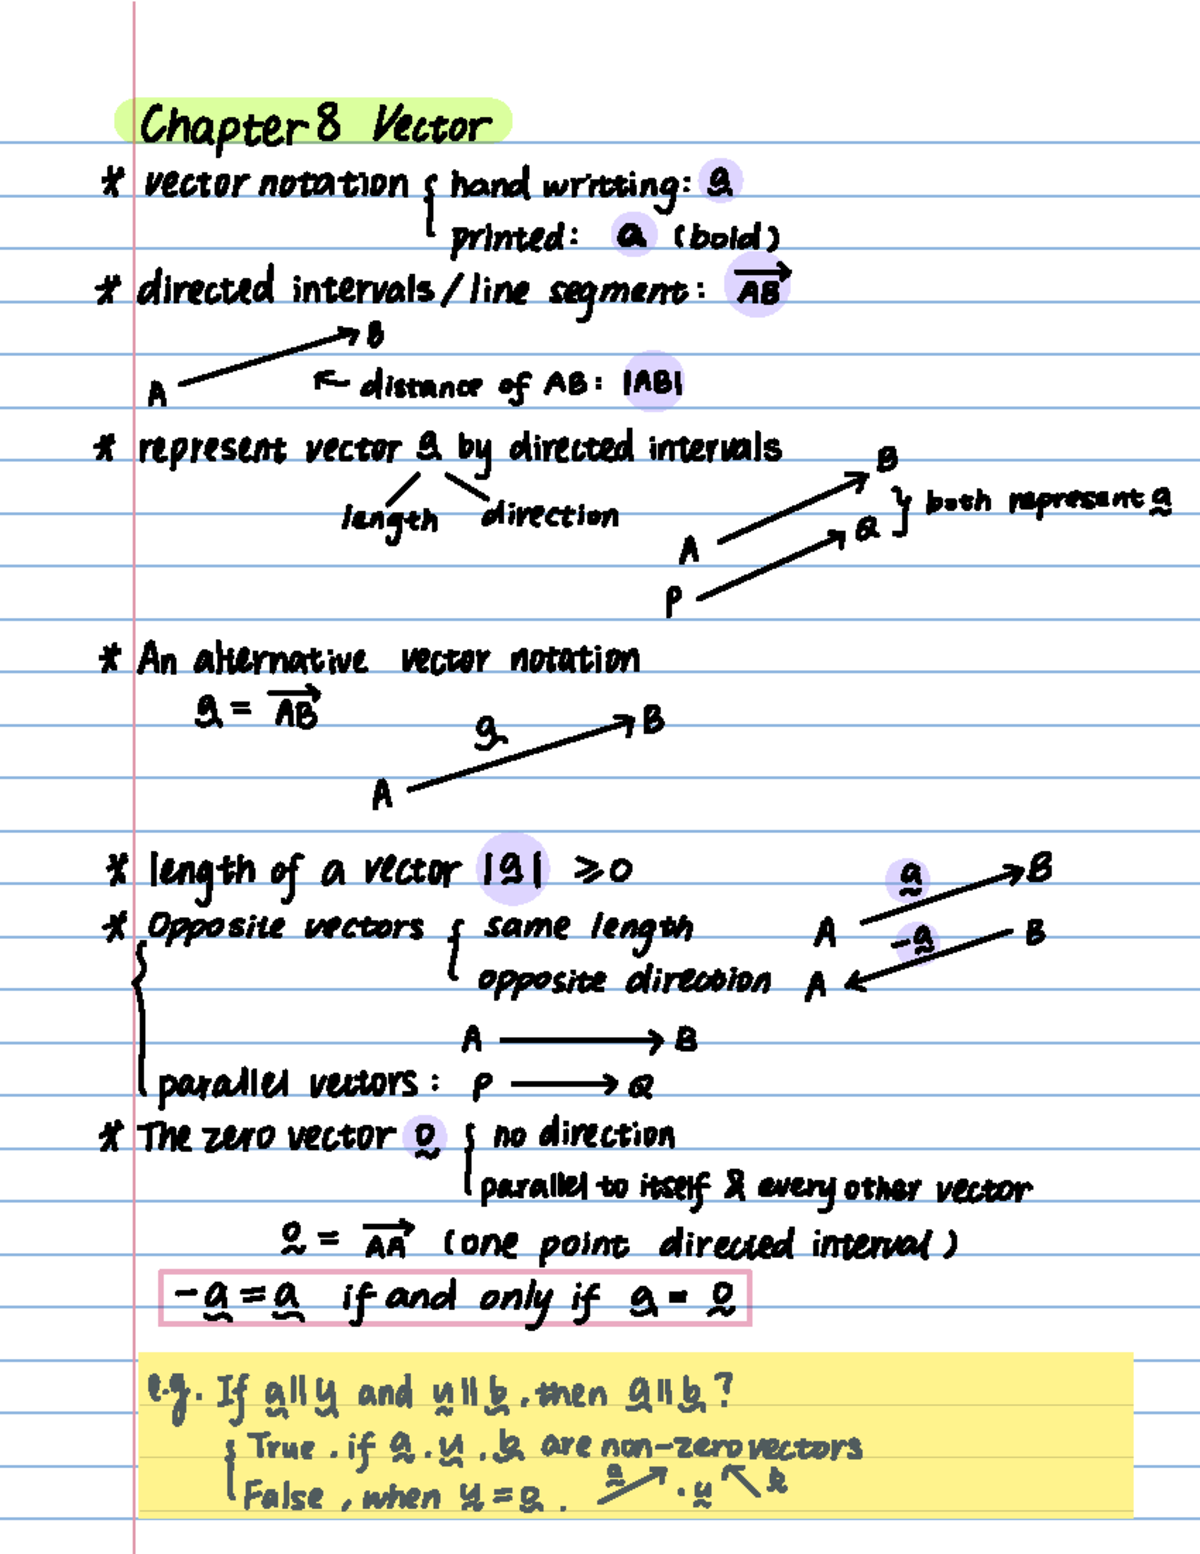 Chapter 8 Vector
* vector notation { hand writting: a̰
printed: a (bold)
* directed intervals / line segment: \overrightarrow{AB}
B
A
← distance of AB: |AB|
* represent vector a̰ by directed intervals
length direction
B
Q } both represent a̰
A
P
* An alternative vector notation
a̰ = \overrightarrow{AB}
a̰ B
A
* length of a vector |a̰| ⩾ 0
a̰ B
* Opposite vectors { same length A -a̰ B
opposite direction A
A → B
parallel vectors: P → Q
* The zero vector 0̰ { no direction
parallel to itself & every other vector
0̰ = \overrightarrow{AA} (one point directed interval)
-a̰ = a̰ if and only if a̰ = 0̰
e.g. If a̰ || ṵ and ṵ || b̰, then a̰ || b̰?
{ True, if a̰, ṵ, b̰ are non-zero vectors
False, when ṵ = 0̰. a̰ . ṵ b̰